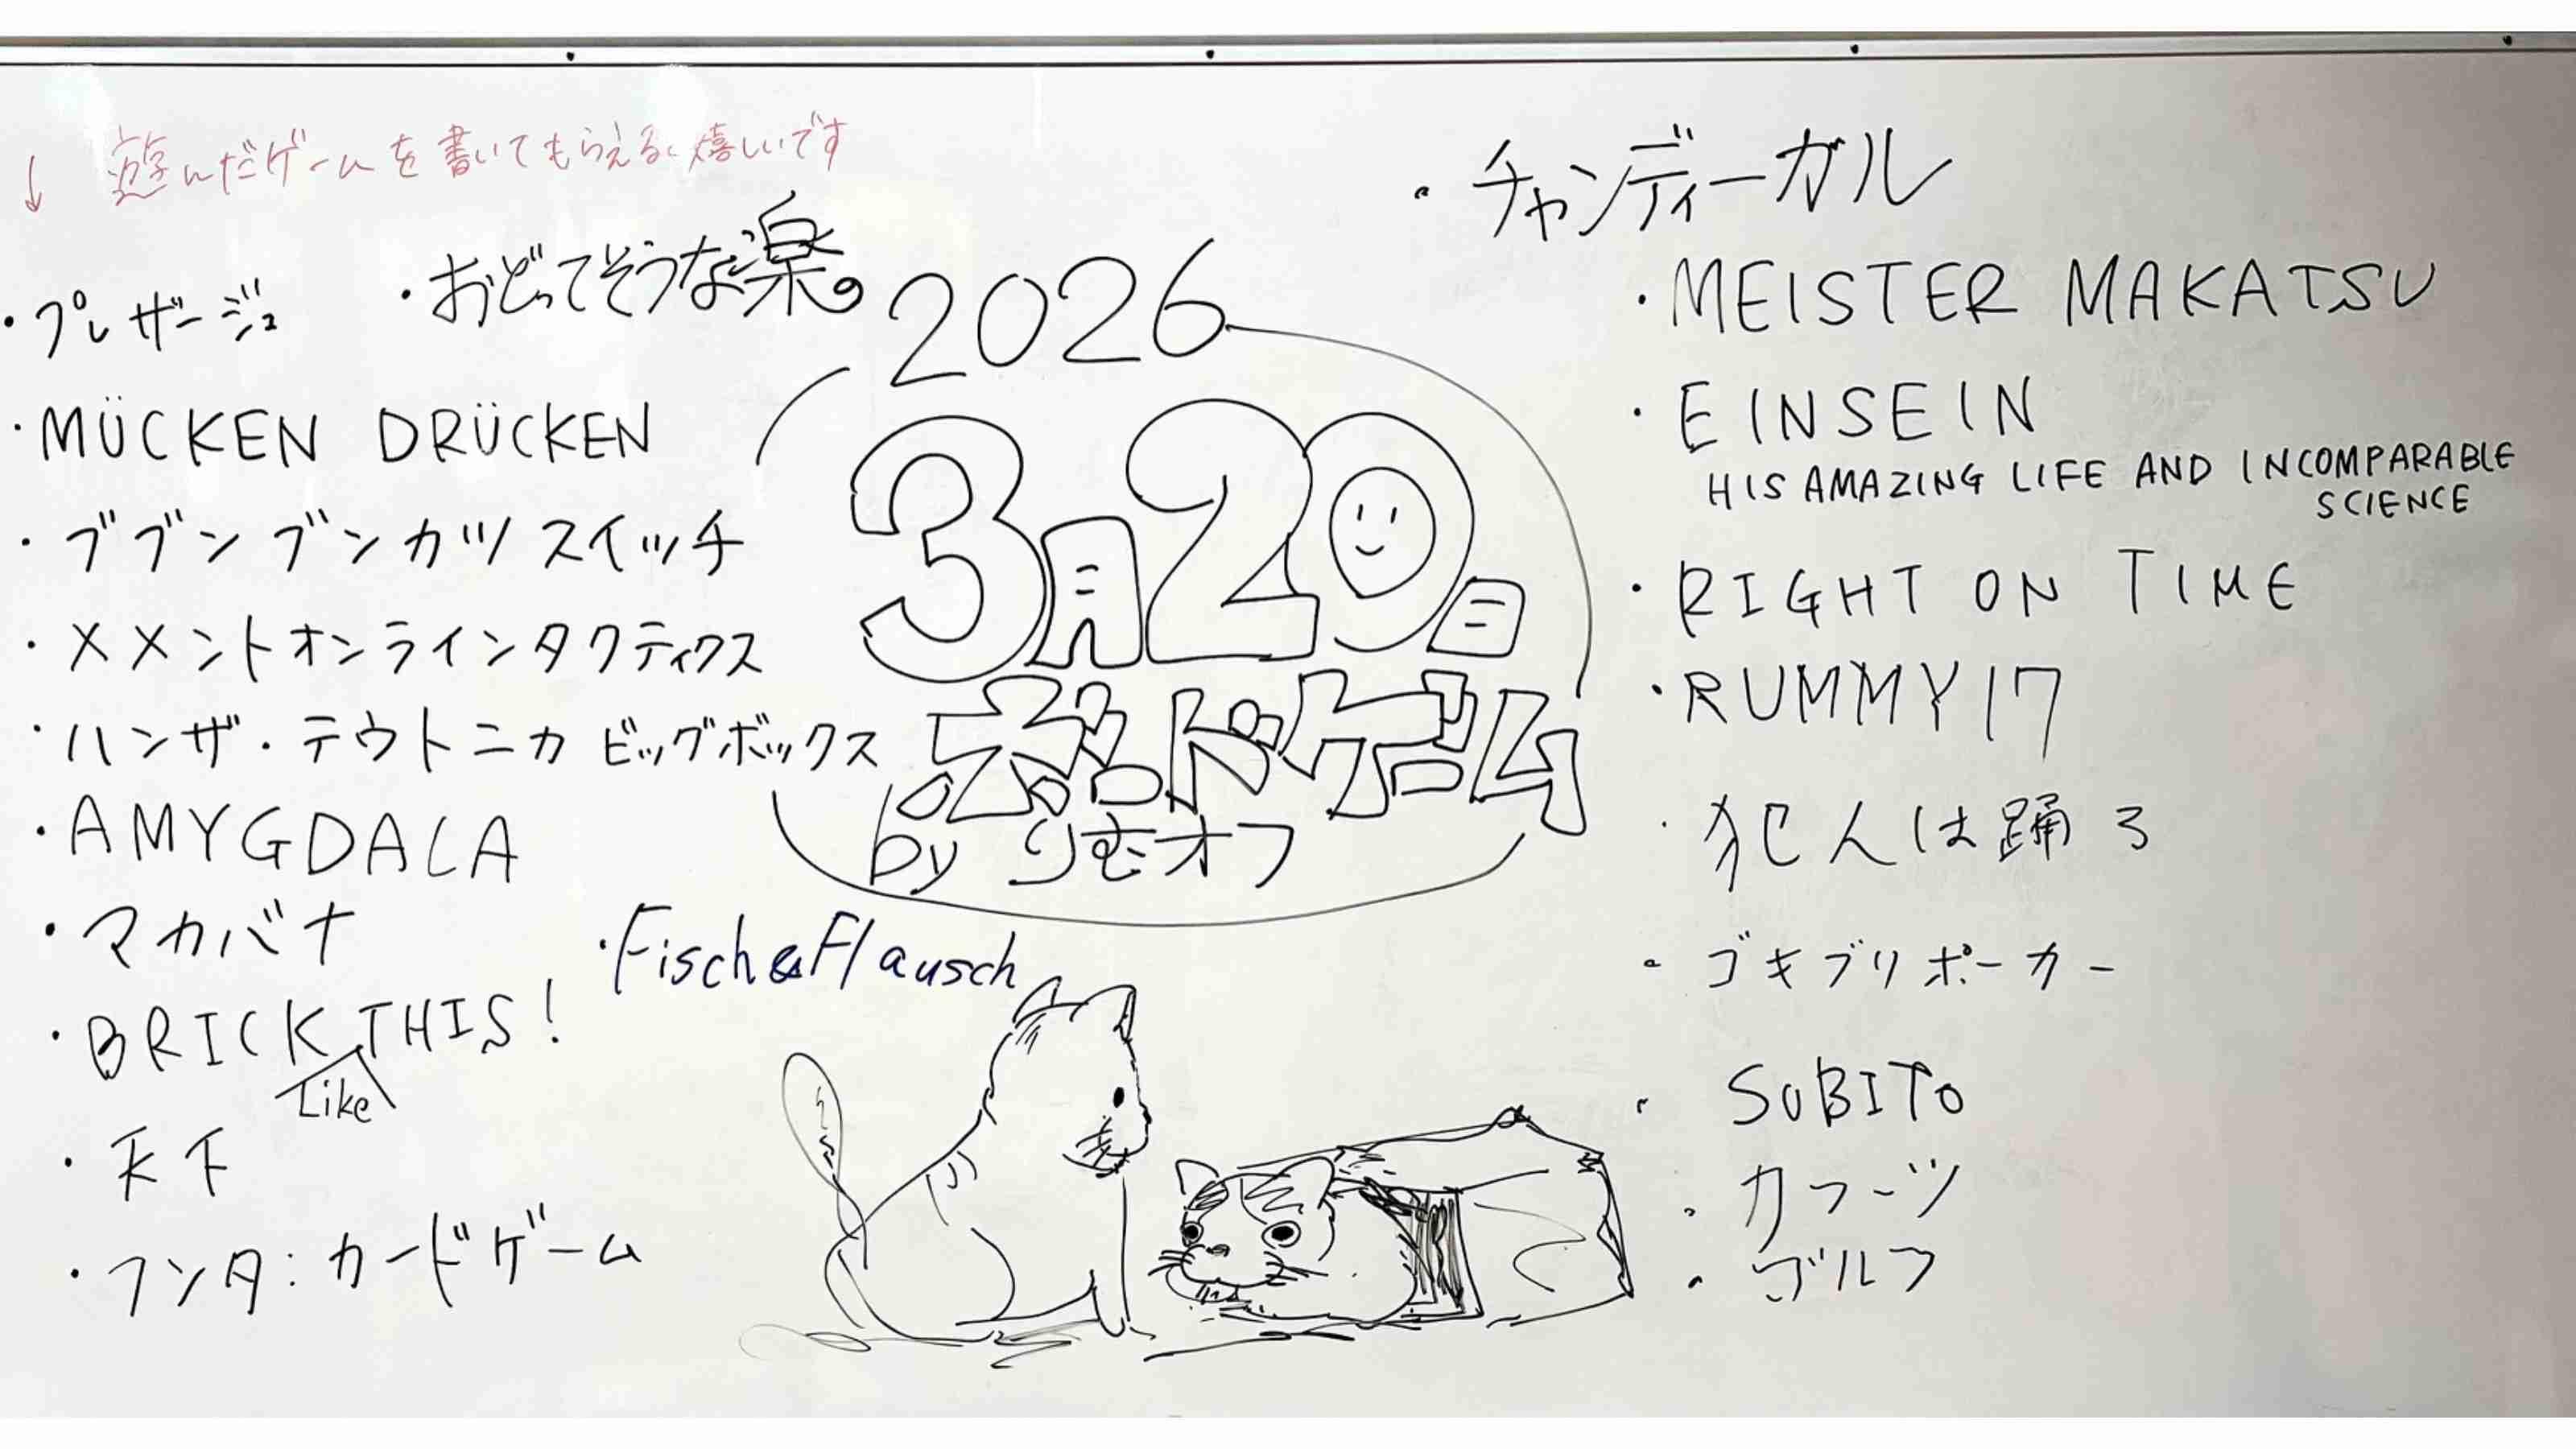 ↓ 遊んだゲームを書いてもらえると嬉しいです
・プレザージュ
・おどってそうな楽。
・MÜCKEN DRÜCKEN
・ブブンブンカツスイッチ
・メメントオンラインタクティクス
・ハンザ・テウトニカ ビッグボックス
・AMYGDALA
・マカバナ
・BRICK THIS!
Like
・天下
・フンタ:カードゲーム
・Fisch&Flausch
2026
3月20日
ボードゲーム
by りむオフ
・チャンディーガル
・MEISTER MAKATSU
・EINSEIN
HIS AMAZING LIFE AND INCOMPARABLE
SCIENCE
・RIGHT ON TIME
・RUMMY17
・犯人は踊る
・ゴキブリポーカー
・SUBITO
・カラーツ
・ゴルフ